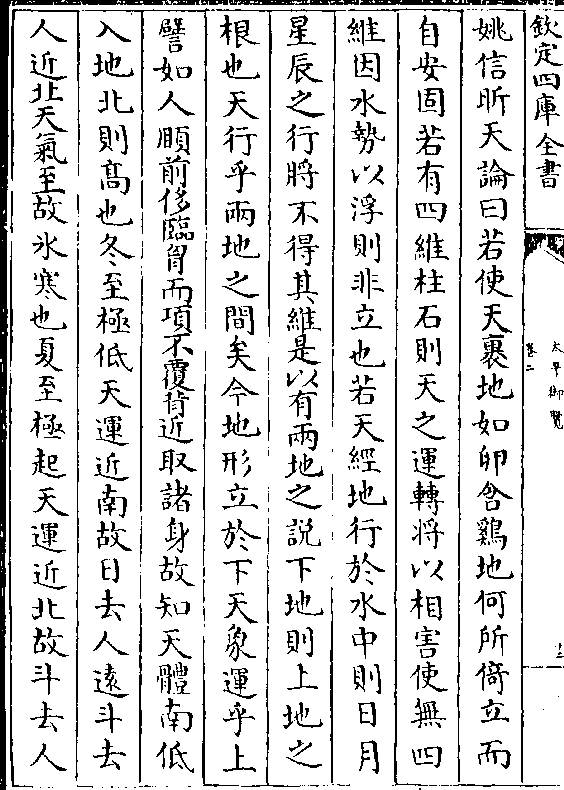 欽定四庫全書
太平御覽
卷二
十三
姚信昕天論曰若使天裹地如卵含鷄地何所倚立而
自安固若有四維柱石則天之運轉將以相害使無四
維因水勢以浮則非立也若天經地行於水中則日月
星辰之行將不得其維是以有兩地之説下地則上地之
根也天行乎兩地之間矣今地形立於下天象運乎上
譬如人頤前侈臨胷而項不覆背近取諸身故知天體南低
入地北則髙也冬至極低天運近南故日去人遠斗去
人近北天氣至故氷寒也夏至極起天運近北故斗去人